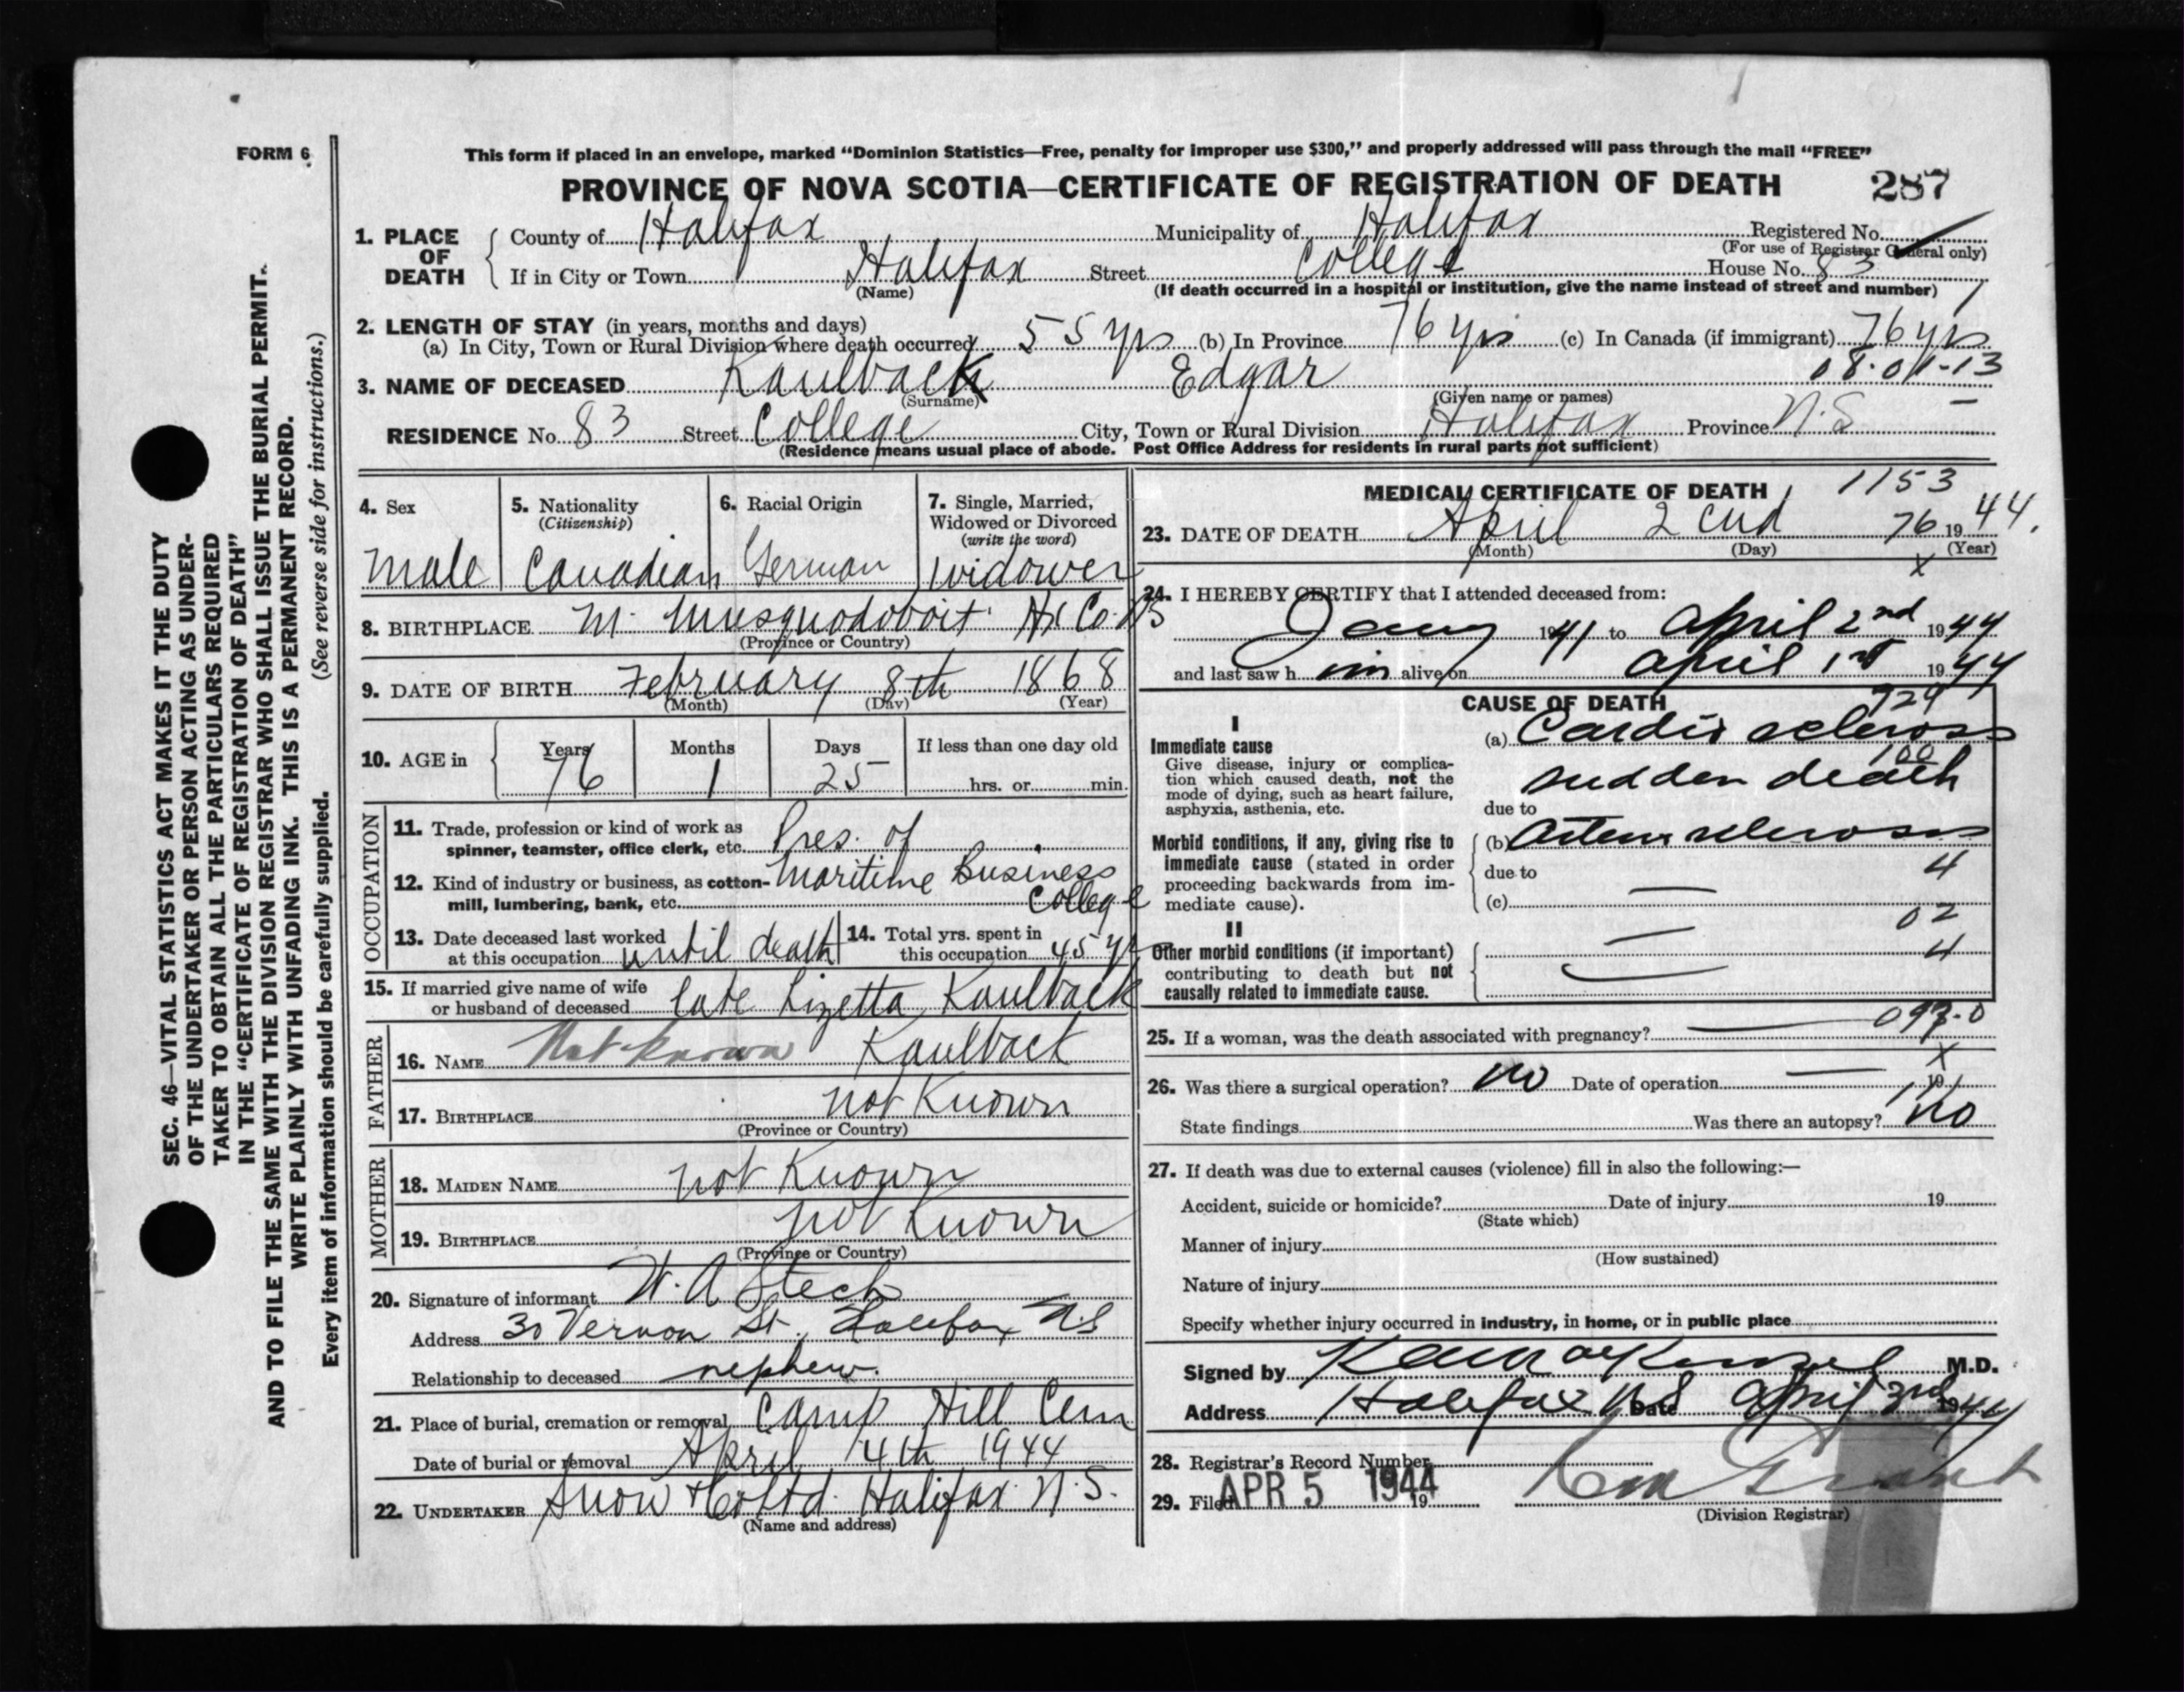 FORM 6
This form if placed in an envelope, marked “Dominion Statistics—Free, penalty for improper use $300,” and properly addressed will pass through the mail “FREE”
PROVINCE OF NOVA SCOTIA—CERTIFICATE OF REGISTRATION OF DEATH 287
1. PLACE OF DEATH
County of Halifax Municipality of Halifax Registered No.
(For use of Registrar General only)
If in City or Town Halifax Street College House No. 83
(Name) (If death occurred in a hospital or institution, give the name instead of street and number)
2. LENGTH OF STAY (in years, months and days)
(a) In City, Town or Rural Division where death occurred 55 yrs (b) In Province 76 yrs (c) In Canada (if immigrant) 76 yrs
3. NAME OF DECEASED Kaulback Edgar 08-01-13
(Surname) (Given name or names)
RESIDENCE No. 83 Street College City, Town or Rural Division Halifax Province N.S
(Residence means usual place of abode. Post Office Address for residents in rural parts not sufficient)
4. Sex
Male
5. Nationality
(Citizenship)
Canadian
6. Racial Origin
German
7. Single, Married,
Widowed or Divorced
(write the word)
Widower
8. BIRTHPLACE M. Musquodoboit Hx Co. NS
(Province or Country)
9. DATE OF BIRTH February 8th 1868
(Month) (Day) (Year)
10. AGE in Years Months Days If less than one day old
76 1 25 hrs. or min.
OCCUPATION
11. Trade, profession or kind of work as
spinner, teamster, office clerk, etc. Pres. of
12. Kind of industry or business, as cotton- Maritime Business
mill, lumbering, bank, etc. College
13. Date deceased last worked
at this occupation until death
14. Total yrs. spent in
this occupation 45 yr
15. If married give name of wife
or husband of deceased late Lizetta Kaulback
FATHER
16. NAME Not known Kaulback
17. BIRTHPLACE not Known
(Province or Country)
MOTHER
18. MAIDEN NAME not Known
19. BIRTHPLACE not Known
(Province or Country)
20. Signature of informant W. A Stech
Address 30 Vernon St., Halifax NS
Relationship to deceased nephew.
21. Place of burial, cremation or removal Camp Hill Cem
Date of burial or removal April 4th 1944
22. UNDERTAKER Snow & Co Ltd. Halifax N.S.
(Name and address)
MEDICAL CERTIFICATE OF DEATH 1153
23. DATE OF DEATH April 2 cnd 76 1944.
(Month) (Day) (Year)
x
24. I HEREBY CERTIFY that I attended deceased from:
1941 to April 2nd 1944
and last saw him alive on April 1st 1944
CAUSE OF DEATH
924
I
Immediate cause
Give disease, injury or complica-
tion which caused death, not the
mode of dying, such as heart failure,
asphyxia, asthenia, etc.
(a) Cardio sclerosis
100
sudden death
due to
Morbid conditions, if any, giving rise to
immediate cause (stated in order
proceeding backwards from im-
mediate cause).
(b) Arterio sclerosis
due to 4
(c)
02
II
Other morbid conditions (if important)
contributing to death but not
causally related to immediate cause.
4
25. If a woman, was the death associated with pregnancy?
x
26. Was there a surgical operation? No Date of operation 19
State findings Was there an autopsy? No
27. If death was due to external causes (violence) fill in also the following:—
Accident, suicide or homicide? Date of injury 19
(State which)
Manner of injury
(How sustained)
Nature of injury
Specify whether injury occurred in industry, in home, or in public place
Signed by M.D.
Address Halifax N.S Date April 3rd 1944
28. Registrar's Record Number
29. Filed APR 5 1944 19
(Division Registrar)
SEC. 46—VITAL STATISTICS ACT MAKES IT THE DUTY
OF THE UNDERTAKER OR PERSON ACTING AS UNDER-
TAKER TO OBTAIN ALL THE PARTICULARS REQUIRED
IN THE “CERTIFICATE OF REGISTRATION OF DEATH”
AND TO FILE THE SAME WITH THE DIVISION REGISTRAR WHO SHALL ISSUE THE BURIAL PERMIT.
WRITE PLAINLY WITH UNFADING INK. THIS IS A PERMANENT RECORD.
Every item of information should be carefully supplied. (See reverse side for instructions.)